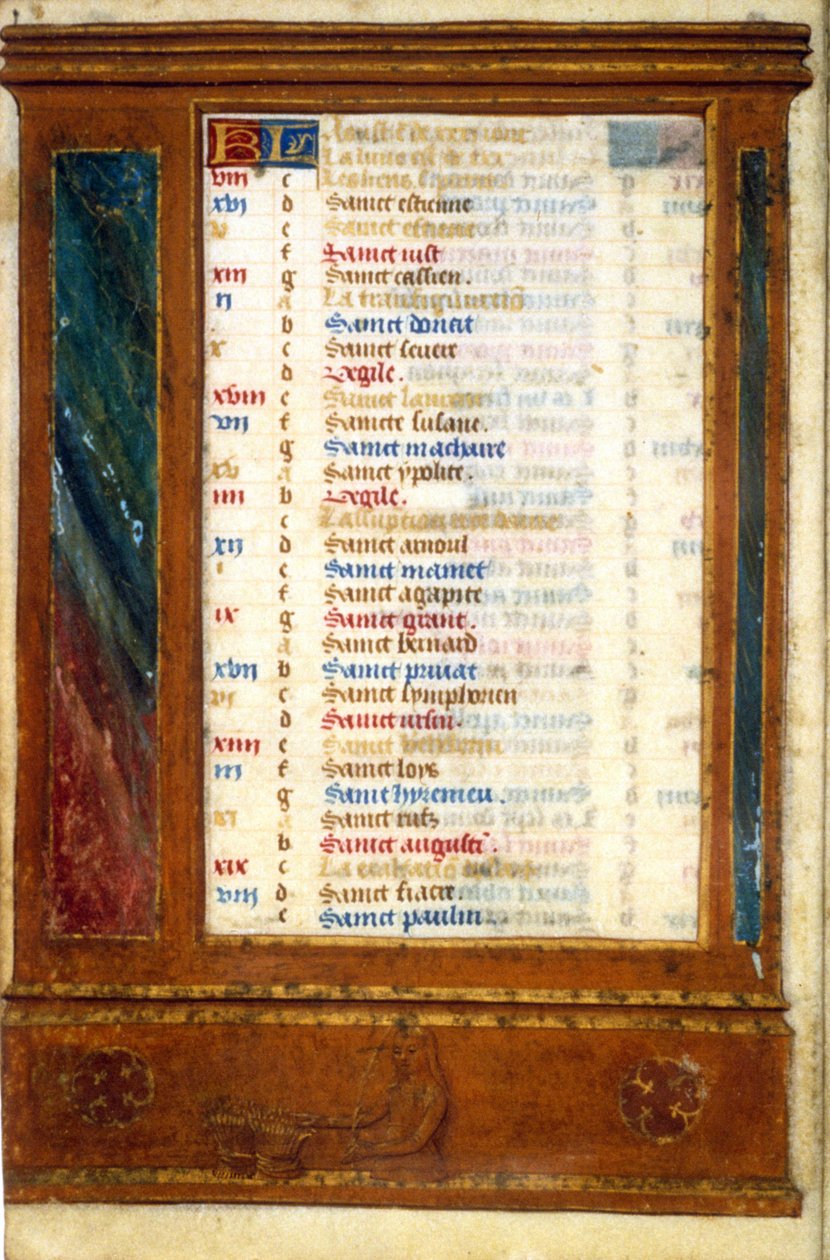 KL Aoust a xxxi iours
La lune
viii c Les liens sainct
xvi d Sainct estienne
v e Sainct estienne
f Sainct iust
xiii g Sainct cassien.
ii a La transfiguration
b Sainct donat
x c Sainct severe
d Vegile.
xviii e Sainct laurens
vii f Saincte susane.
g Sainct machaire
xv a Sainct ypolite.
iiii b Vegile.
c Lassumption nostre dame
xii d Sainct arnoul
i e Sainct mamet
f Sainct agapite
ix g Sainct grant.
a Sainct bernard
xvii b Sainct privat
vi c Sainct symphorien
d Sainct ursin
xiiii e Sainct
iii f Sainct loys
g Sainct hyreneu.
xi a Sainct rufz
b Sainct augusti.
xix c La
viii d Sainct fiacre.
e Sainct paulin